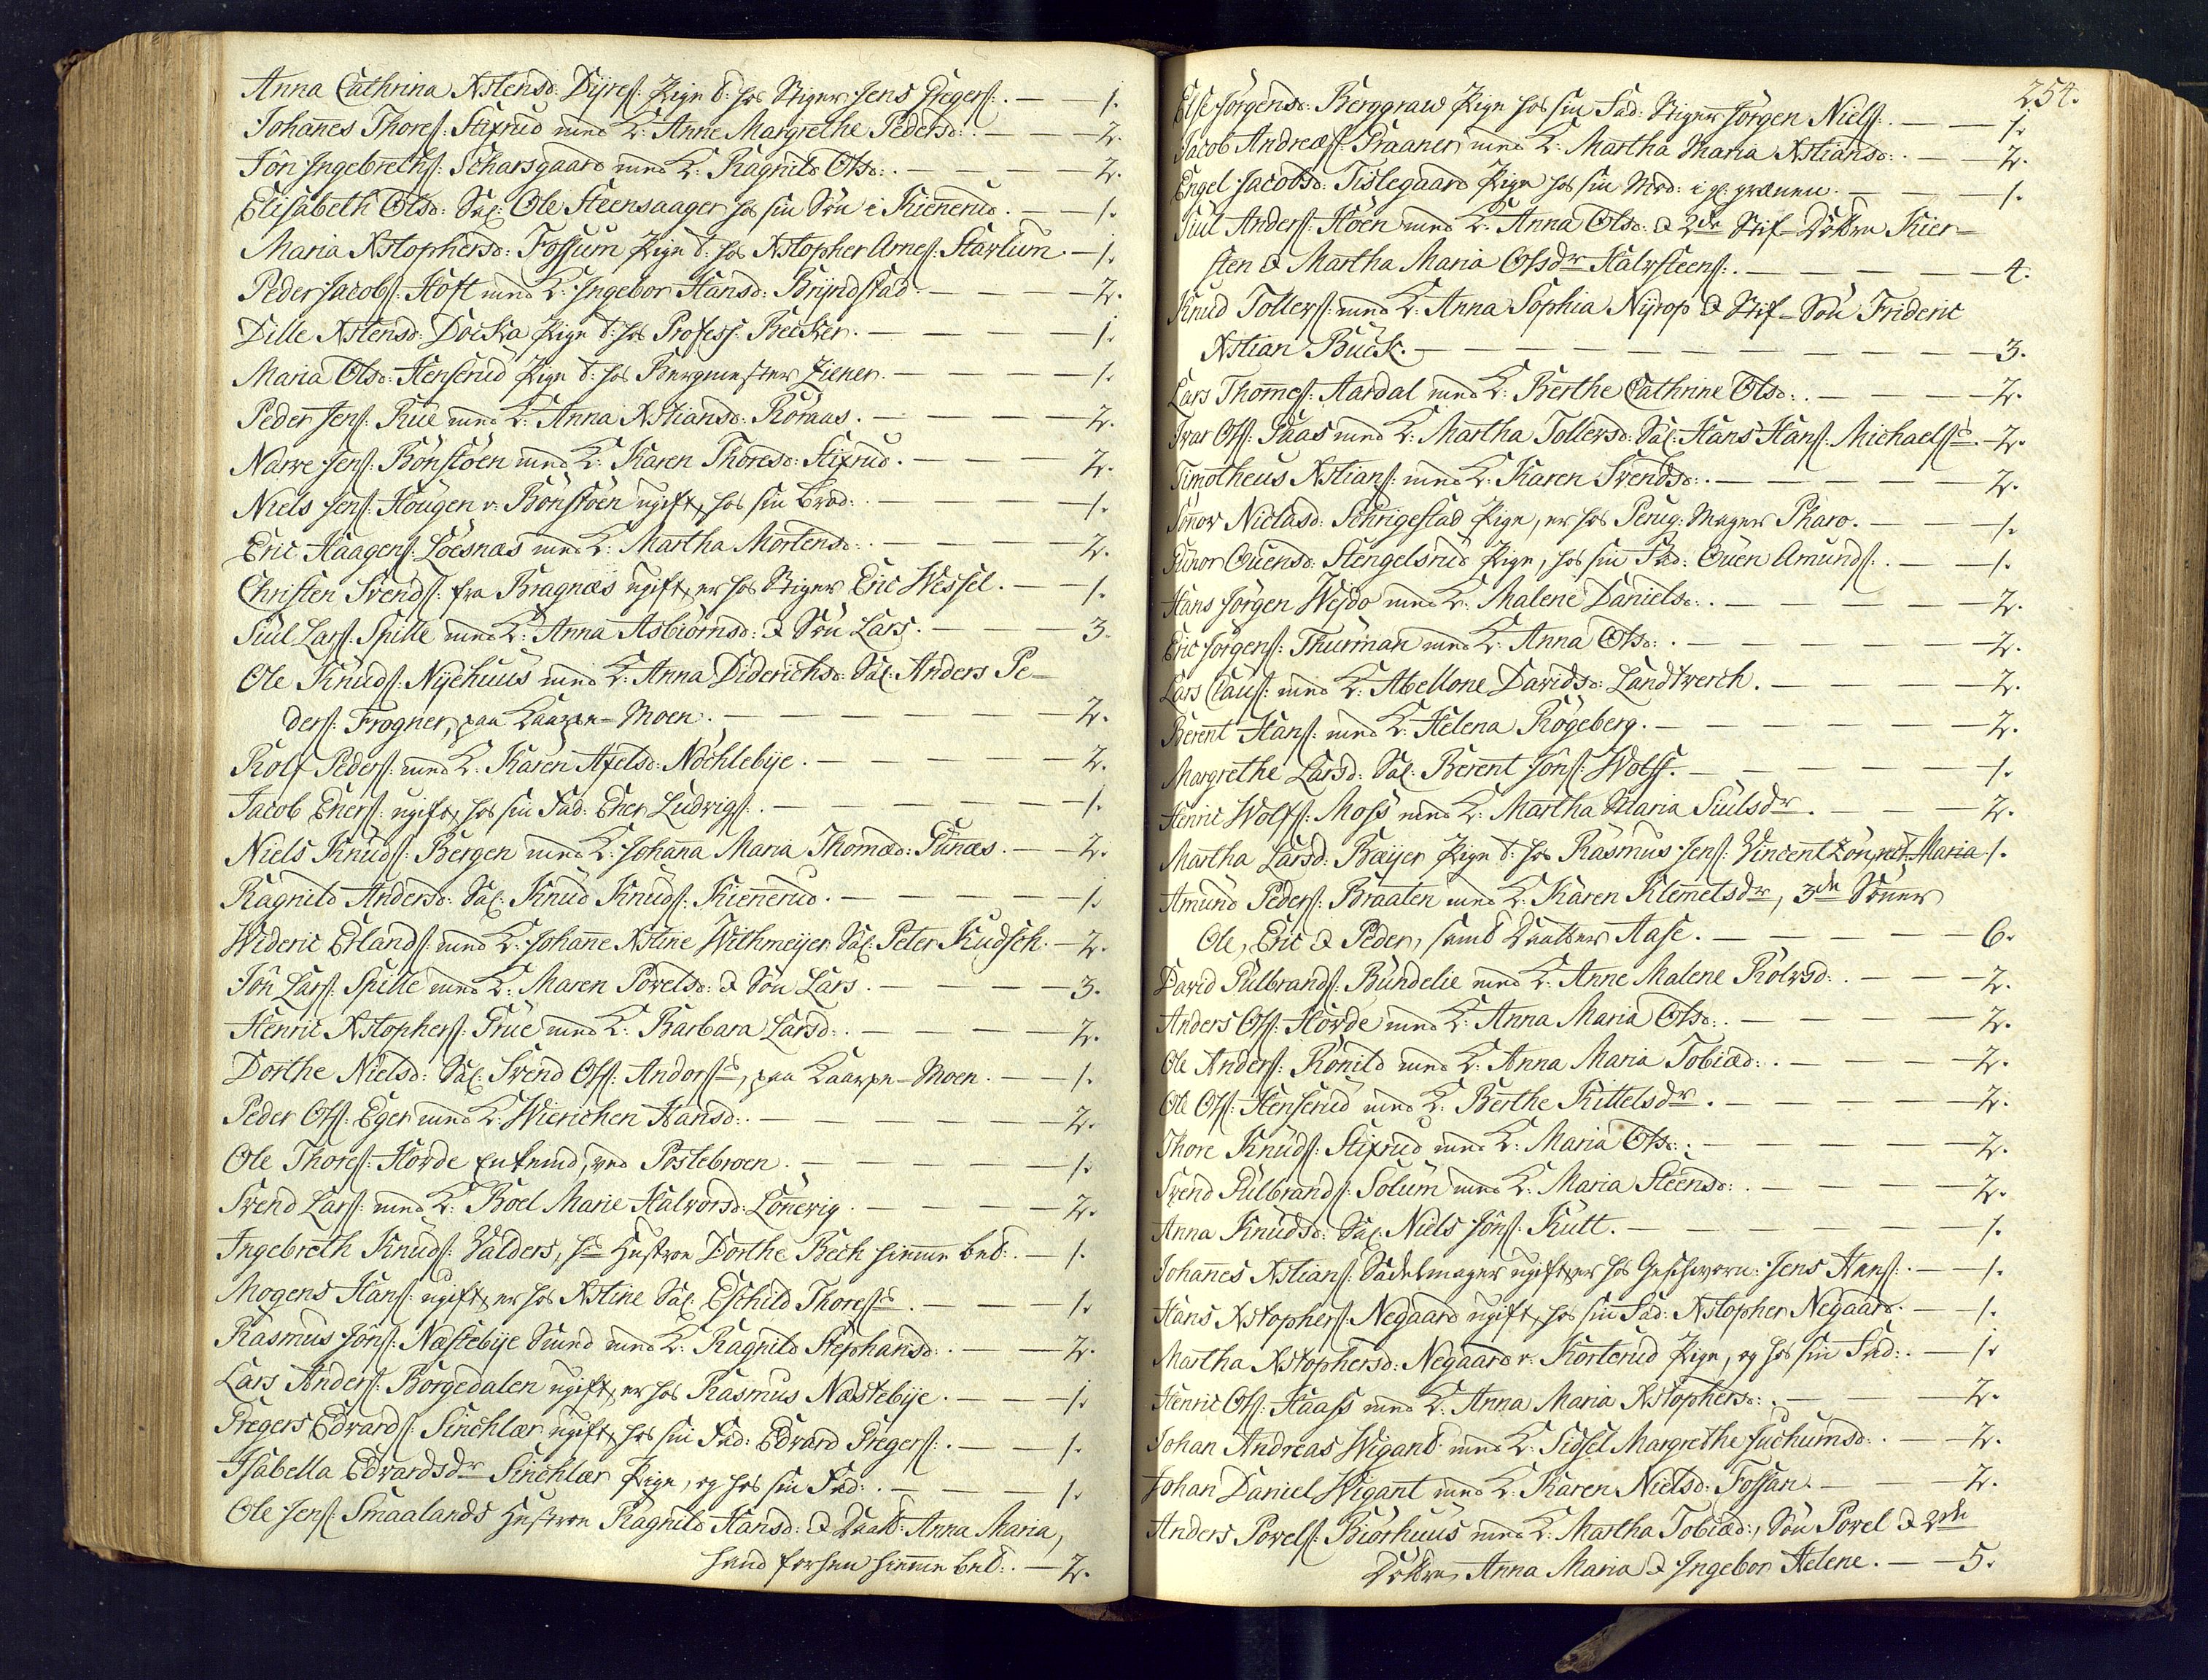 Anna Cathrina Xstensd: Dyres: Pige t: hos Stiger Jens Gregers: . — — 1.
Johanes Thores: Stixrud med K: Anne Margrethe Pedersd: . — — — 2.
Jôn Ingebrechts: Scharsgaard med K: Ragnild Olsd: . — — — — 2.
Elisabeth Olsd: Sal: Ole Steensaager hos sin Sön i Kienerud. — — 1.
Maria Xstophersd: Fossum Pige t: hos Xstopher Arnes: Starlum. — 1.
Peder Jacobs: Hoft med K: Ingebor Hansd: Bryndstad. — — — — 2.
Dille Xstensd: Docka Pige t: hos Profess: Becker. — — — — — 1.
Maria Olsd: Henserud Pige t: hos Bergmester Ziener. — — — — — 1.
Peder Jens: Rue med K: Anna Xstiansd: Roraas. — — — — — 2.
Narve Jens: Bönstöen med K: Karen Thoresd: Stixrud. — — — — 2.
Niels Jens: Hougen v. Bönstöen ugift, hos sin Brod: . — — — — — 1.
Eric Haagens: Loesnæs med K: Martha Mortensd: . — — — — — 2.
Christen Svends: fra Bragnæs ugift, er hos Stiger Eric Wessel. — — 1.
Siul Lars: Spitte med K: Anna Asbiörnsd: & Sön Lars. — — — 3.
Ole Knuds: Nyehuus med K: Anna Diderichsd: Sal: Anders Pe-
ders: Frogner, paa Kaarpe-Moen. — — — — — — — 2.
Rolf Peders: med K: Karen Axelsd: Nöchlebye. — — — — — — 2.
Jacob Eners: ugift, hos sin Fad: Ener Ludvigs: . — — — — — — 1.
Niels Knuds: Bergen med K: Johana Maria Thomæd: Gunæs. — — 2.
Ragnild Andersd: Sal: Knud Knuds: Kienerud. — — — — — — 1.
Wideric Erlands: med K: Johane Xstine Withmeyer Sal: Peter Kudsch. — 2.
Jôn Lars: Spitte med K: Maren Povelsd: & Sön Lars. — — — — — 3.
Henric Xstophers: True med K: Barbara Larsd: . — — — — — 2.
Dorthe Nielsd: Sal: Svend Ols: Andorss, paa Kaarpe-Moen. — — 1.
Peder Ols: Eger med K: Wierichen Hansd: . — — — — — — 2.
Ole Thores: Hörde Enkemd, ved Postebroen. — — — — — — 1.
Svend Lars: med K: Boel Marie Halvorsd: Lönevig. — — — — — 2.
Ingebreth Knuds: Valders, hs Hustroe Dorthe Bech hieme bet: . — 1.
Mogens Hans: ugift, er hos Xstine Sal: Eschild Thoress. — — — — 1.
Rasmus Jöns: Næstebye Smed med K: Ragnild Stephansd: . — — — 2.
Lars Anders: Borgedalen ugift, er hos Rasmus Næstebye. — — — 1.
Gregers Edvards: Sinchlær ugift, hos sin Fad: Edvard Gregers: . — — — 1.
Isabella Edvardsdr Sinchlær Pige, og hos sin Fad: . — — — — — 1.
Ole Jens: Smaalands Hustroe Ragnild Hansd: & Daatt: Anna Maria,
hand forhen hieme bet: . — 2.
254.
Else Jörgensd: Berggraw Pige hos sin Fad: Stiger Jörgen Niels: . — — 1.
Jacob Andreæs: Praaner med K: Martha Maria Xstiansd: . — — 2.
Engel Jacobsd: Tislegaard Pige hos sin Mod: i gl: — — — 1.
Siul Anders: Höen med K: Anna Olsd: & 2de Stif-Döttre Kier-
sten & Martha Maria Olsdr Halvsteens: . — — — — — 4.
Knud Tollers: med K: Anna Sophia Nyrop & Stif-Sön Frideric
Xstian Buck. — — — — — — — — — — 3.
Lars Thomes: Aardal med K: Berthe Cathrine Olsd: . — — — — 2.
Ivar Ols: Paas med K: Martha Tollersd: Sal: Hans Hans: Michaelss. — 2.
Timotheus Xstians: med K: Karen Svendsd: . — — — — — 2.
Sönov Niclasd: Schrigestad Pige, er hos Peruq: Mager Pharo. — — — 1.
Gunor Ouensd: Stengelsrud Pige, hos sin Fad: Ouen Amunds: . — — 1.
Hans Jörgen Wejdo med K: Malene Danielsd: . — — — — — 2.
Eric Jörgens: Thurman med K: Anna Olsd: . — — — — — — 2.
Lars Claus: med K: Abellone Davidsd: Landtverch. — — — — — 2.
Berent Hans: med K: Helena Rögeberg. — — — — — — 2.
Margrethe Larsd: Sal: Berent Jöns: Wolff. — — — — — — 1.
Henric Wolfs: Moss med K: Martha Maria Siulsdr. — — — — 2.
Martha Larsd: Bæyer Pige t: hos Rasmus Jens: Vincent Maria 1.
Amund Peders: Braaten med K: Karen Klemetsdr, 3de Söner
Ole, Eric & Peder, samt Daatter Aase. — — — — — — 6.
David Gulbrands: Bundelie med K: Anne Malene Rolvsd: . — — — 2.
Anders Ols: Hörde med K: Anna Maria Olsd: . — — — — — 2.
Ole Anders: Rönild med K: Anna Maria Tobiæd: . — — — — 2.
Ole Ols: Henserud med K: Berthe Kittelsdr. — — — — — 2.
Thore Knuds: Stixrud med K: Maria Olsd: . — — — — — — 2.
Svend Gulbrands: Solum med K: Maria Steensd: . — — — — — 2.
Anna Knudsd: Sal: Niels Jöns: Kutt. — — — — — — — 1.
Johanes Xstians: Sadelmager ugift, er hos Geschworn: Jens Anns: . — — 1.
Hans Xstophers: Negaard ugift, hos sin Fad: Xstopher Negaard. — — 1.
Martha Xstophersd: Negaard v. Korterud Pige, og hos sin Fad: . — — 1.
Henric Ols: Haass med K: Anna Maria Xstophersd: . — — — — 2.
Johan Andreas Wigand med K: Sidsel Margrethe Juchumsd: . — — 2.
Johan Daniel Wigant med K: Karen Nielsd: Fossan. — — — — 2.
Anders Povels: Biörhuus med K: Martha Tobiæd:, Sön Povel & 2de
Döttre, Anna Maria & Ingebor Helene. — — 5.